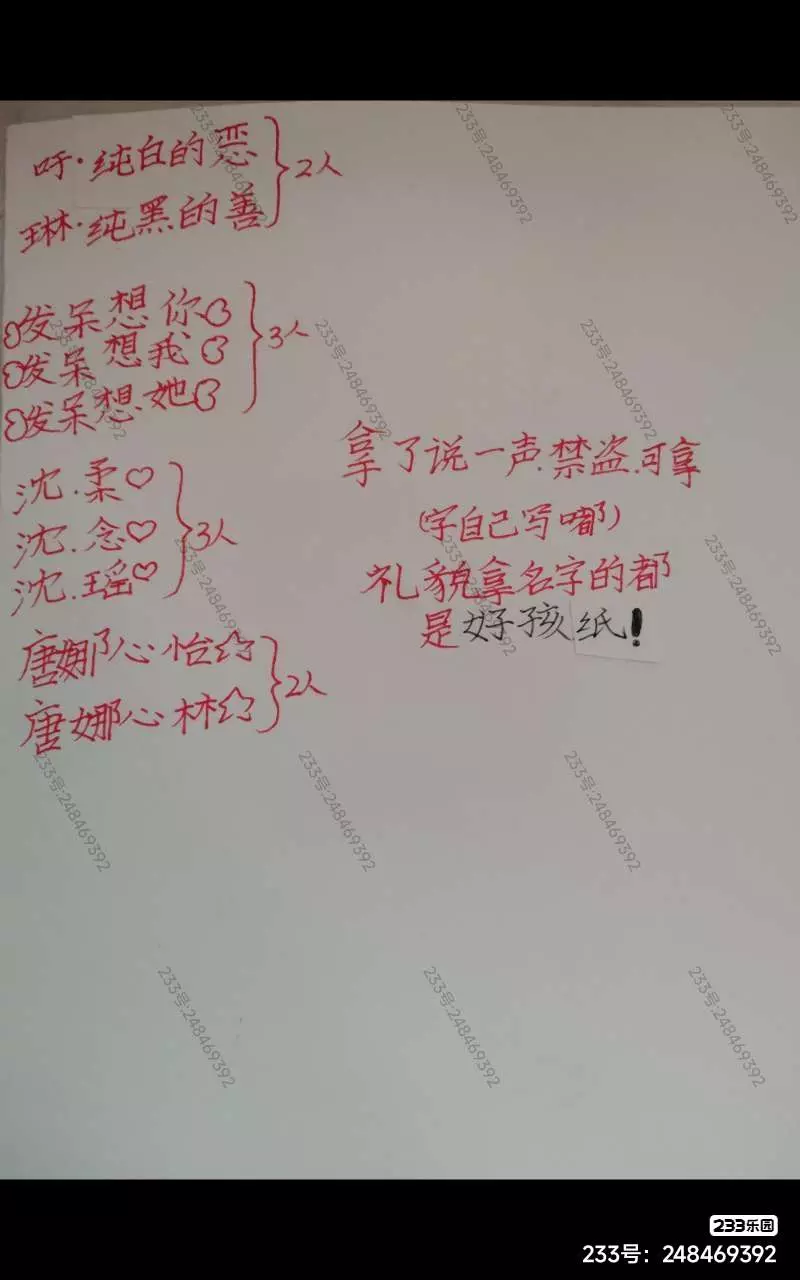 吁·纯白的恶
琳·纯黑的善
2人
发呆想你
发呆想我
发呆想她
3人
沈.柔♡
沈.念♡
沈.瑶♡
3人
唐娜心怡☆
唐娜心林☆
2人
拿了说一声.禁盗.可拿
(字自己写嘟)
礼貌拿名字的都
是好孩纸!
233乐园
233号：248469392